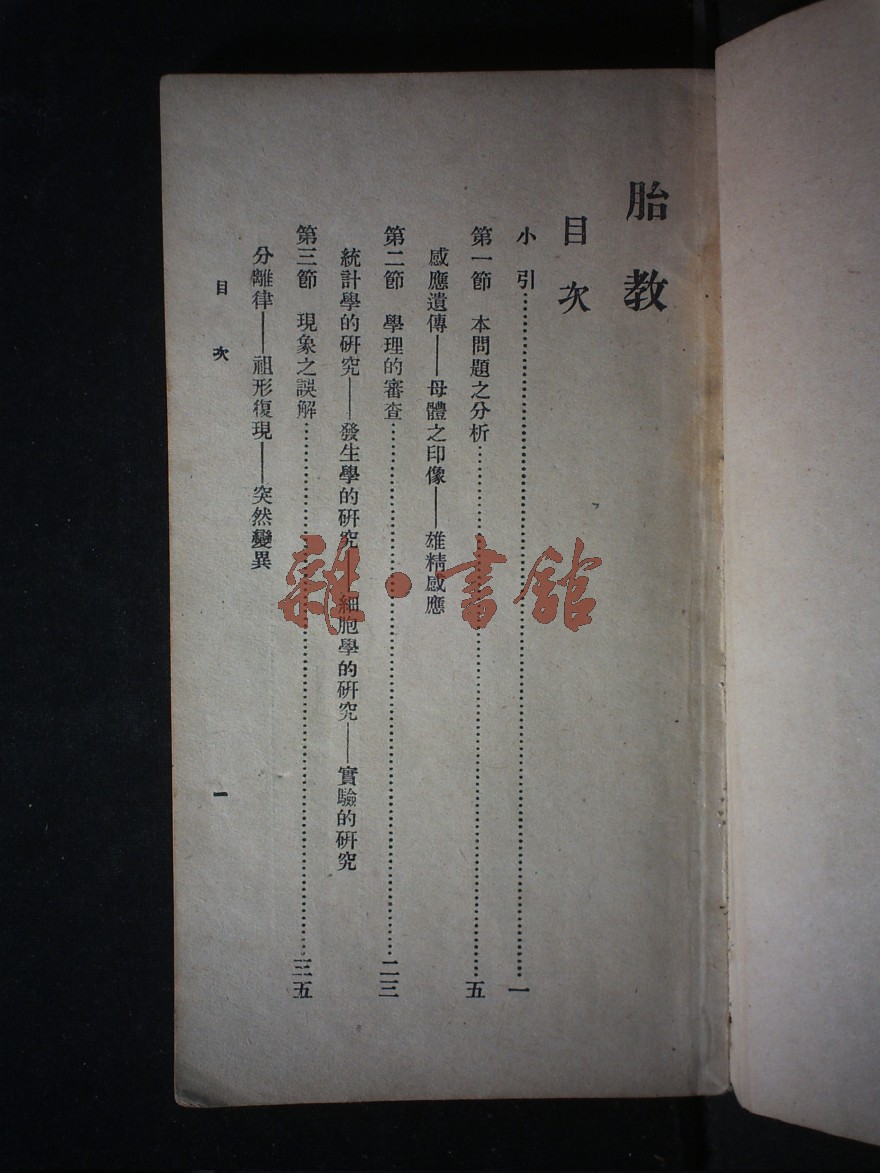 胎教
目次
小引……一
第一節　本問題之分析……五
感應遺傳——母體之印像——雄精感應
第二節　學理的審查……二三
統計學的研究——發生學的研究——細胞學的研究——實驗的研究
第三節　現象之誤解……三五
分離律——祖形復現——突然變異
目次　一
雜·書館